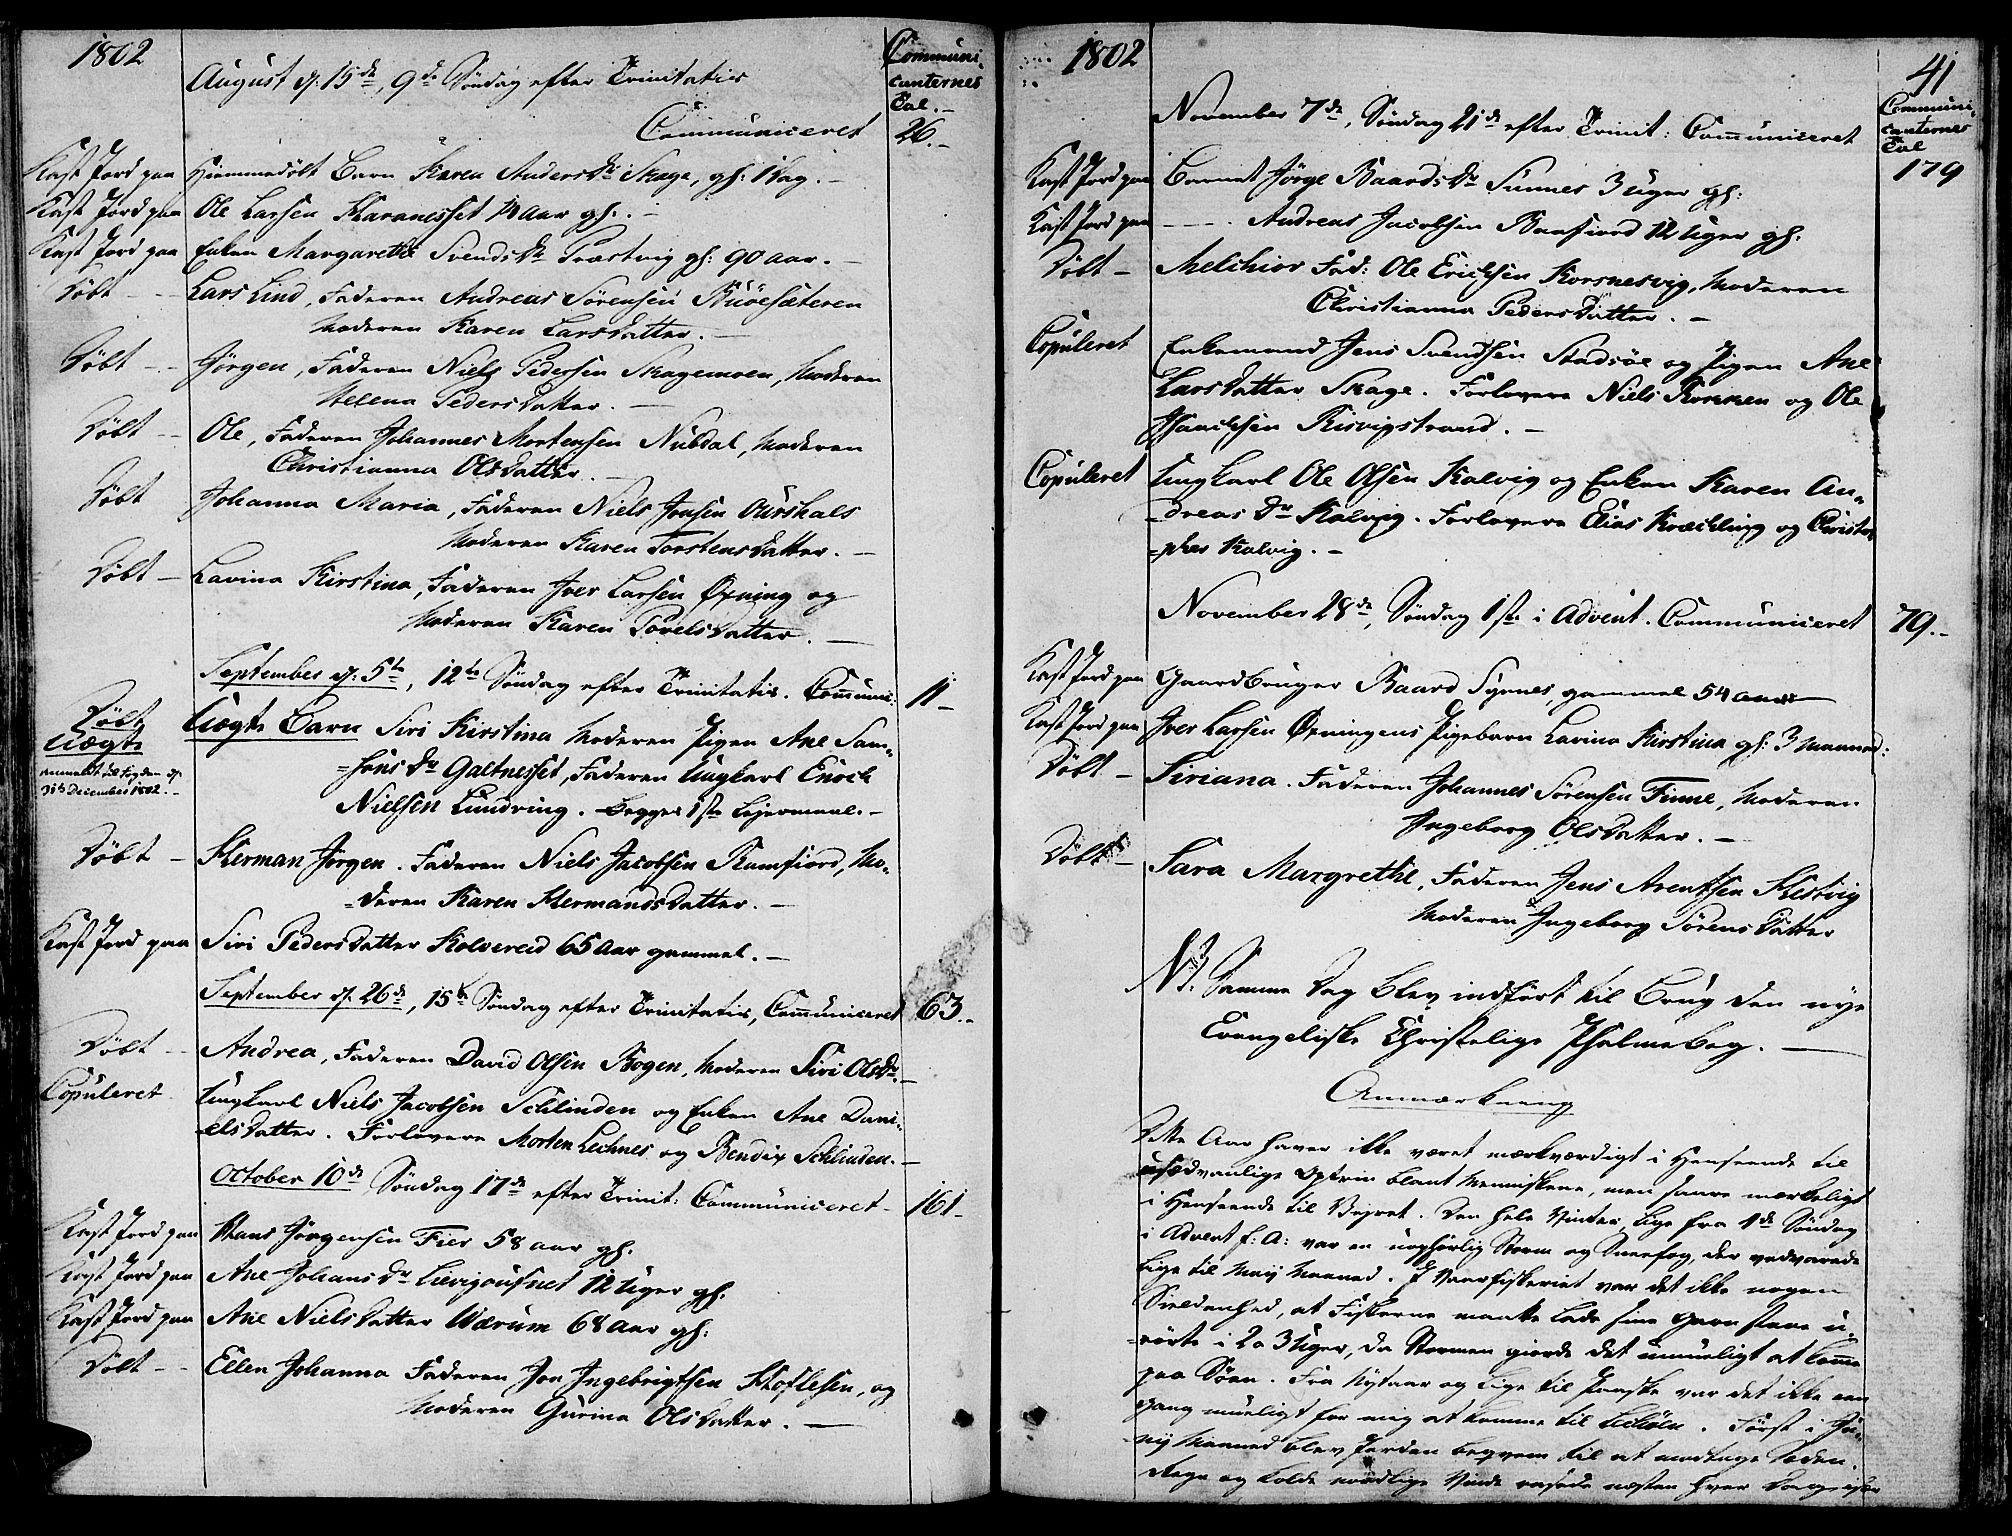 1802
Communi-
canternes
Tal.-
August d: 15de, 9de Søndag efter Trinitatis
Communiceret 26.-
Kast Jord paa Hiemmedøbt Barn Karen Andersdr Skage, gl: 1 Dag.-
Kast Jord paa Ole Larsen Skaranesset 14 Aar gl:.-
Kast Jord paa Enken Margarethe Svendsdr Præstvig gl: 90 aar.-
Døbt - Lars Lind, Faderen Andreas Sørensen
Moderen Karen Larsdatter.-
Døbt - Jørgen, Faderen Niels Pedersen Skagemoen, Moderen
Helena Pedersdatter.-
Døbt - Ole, Faderen Johannes Mortensen Nubdal, Moderen
Christianna Olsdatter.-
Døbt Johanna Maria, Faderen Niels Jonsen Aurshals
Moderen Karen Torstensdatter.-
Døbt - Lavina Kirstina, Faderen Iver Larsen Øxning og
Moderen Karen Povelsdatter.-
September d: 5te, 12te Søndag efter Trinitatis. Communi: 11-
Døbt
Uægte Uægte Barn Siri Kirstina Moderen Pigen Ane Sam-
anmeldt til Fogden d: =sonsdr Galtnesset, Faderen Ungkarl Enoch
31te December 1802.- Nielsen Lundring. Begges 1ste Lejermaal.-
Døbt - Herman Jørgen. Faderen Niels Jacobsen Ramfiord, Mo-
=deren Karen Hermandsdatter.-
Kast Jord paa Siri Pedersdatter Kolvereid 65 Aar gammel.-
September d: 26de, 15te Søndag efter Trinitatis, Communiceret 63.-
Døbt - Andrea, Faderen David Olsen Bogen, Moderen Siri Olsdr.-
Copuleret Ungkarl Niels Jacobsen Schlinden og Enken Ane Dani-
=elsdatter. Forlovere Morten Lechnes og Bendix Schlinden.-
October 10de Søndag 17de efter Trinit: Communiceret- 161-
Kast Jord paa Hans Jørgensen Fier 58 aar gl:
Kast Jord paa Ane Johansdr 12 Uger gl:
Kast Jord paa Ane Nielsdatter Wærum 68 Aar gl:
Døbt - Ellen Johanna Faderen Jon Ingebrigtsen, og
Moderen Gurina Olsdatter.-
1802
41
Communi-
canternes
Tal
November 7de, Søndag 21de efter Trinit: Communiceret 179
Kast Jord paa Barnet Jørge Baardsdr Sunnes 3 Uger gl:
Kast Jord paa - - - Andreas Jacobsen Ramfiord 12 Uger gl:
Døbt - Melchior Fad: Ole Erichsen Korsnesvig, Moderen
Christianna Pedersdatter.-
Copuleret Enkemand Jens Svendsen Stadsøe og Pigen Ane
Larsdatter Skage. Forlovere Niels Romnen og Ole
Isaachsen Risvigstrand.-
Copuleret Ungkarl Ole Olsen Kalvig og Enken Karen An-
=dreasdr Kalvig. Forlovere Elias Kræchling og Christo
=pher Kalvig.-
November 28de, Søndag 1ste i Advent. Communiceret 79.-
Kast Jord paa Gaardbruger Baard Synnes, gammel 54 aar
Kast Jord paa Iver Larsen Øxningens Pigebarn Lavina Kirstina gl: 3 Maaned:
Døbt - Siriana. Faderen Johannes Sørensen Finne, Moderen
Ingeborg Olsdatter.-
Døbt - Sara Margrethe, Faderen Jens Arentsen Hestvig
Moderen Ingeborg Sørensdatter
NB. Samme Dag blev indført til Brug den nye
Evangeliske Christelige Psalmebog.-
Anmærkning
Dette Aar haver ikke været mærkværdigt i Henseende til
usædvanlige Optrin blant Menniskene, men saare mærkeligt
i Henseende til Vejret. Den hele Vinter, lige fra 1de Søndag
i Advent f: A: var en uophørlig Storm og Sneefog, der vedvarede
lige til Maij Maaned. I Vaarfiskeriet var det ikke nogen
Sieldenhed, at Fiskerne maatte lade sine Garn staae u-
=rørte i 2 a 3 Uger, da Stormen giorde det umueligt at komme
paa Søen. Fra Nytaar og lige til Paaske var det ikke een
gang mueligt for mig at komme til. Først i Ju-
nij Maaned blev Jorden beqvem til at modtage Sæden.
Regn og kolde nordlige Vinde rasede næsten hver Dag især